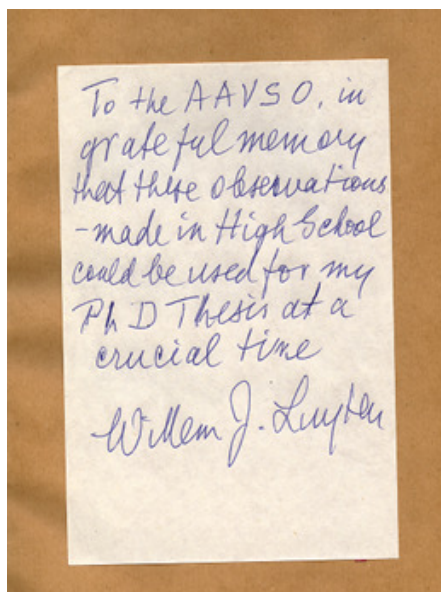 To the AAVSO, in
grateful memory
that these observations
-made in High School
could be used for my
Ph D Thesis at a
crucial time
Willem J. Luyten